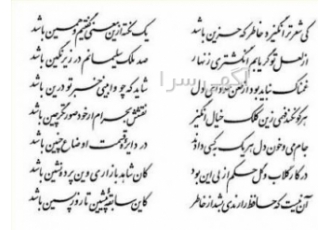 کی شعر تر انگیزد خاطر که حزین باشد یک نکته ازین معنی گفتیم و همین باشد
از لعل تو گر یابم انگشتری زنهار صد ملک سلیمانم در زیر نگین باشد
غمناک نباید بود از طعن حسود ای دل شاید که چو وابینی خیر تو درین باشد
هر کو نکند فهمی زین کلک خیال انگیز نقشش بحرام ار خود صورتگر چین باشد
جام می و خون دل هر یک بکسی دادند در دایره قسمت اوضاع چنین باشد
در کار گلاب و گل حکم ازلی این بود کان شاهد بازاری وین پرده نشین باشد
آن نیست که حافظ را رندی بشد از خاطر کاین سابقه پیشین تا روز پسین باشد
آگهی سرا